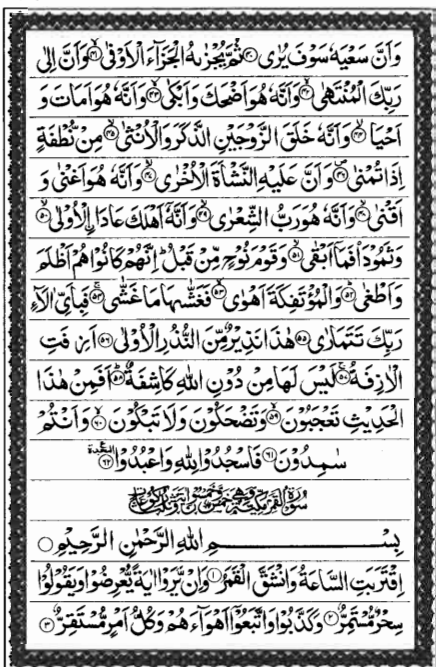 وَاَنَّ سَعْيَهٗ سَوْفَ يُرٰى ۪﴿۴۰﴾ ثُمَّ يُجْزٰىهُ الْجَزَآءَ الْاَوْفٰى ۙ﴿۴۱﴾ وَاَنَّ اِلٰى
رَبِّكَ الْمُنْتَهٰى ۙ﴿۴۲﴾ وَاَنَّهٗ هُوَ اَضْحَكَ وَاَبْكٰى ۙ﴿۴۳﴾ وَاَنَّهٗ هُوَ اَمَاتَ وَ
اَحْيَا ۙ﴿۴۴﴾ وَاَنَّهٗ خَلَقَ الزَّوْجَيْنِ الذَّكَرَ وَالْاُنْثٰى ۙ﴿۴۵﴾ مِنْ نُّطْفَةٍ
اِذَا تُمْنٰى ۪﴿۴۶﴾ وَاَنَّ عَلَيْهِ النَّشْاَةَ الْاُخْرٰى ۙ﴿۴۷﴾ وَاَنَّهٗ هُوَ اَغْنٰى وَ
اَقْنٰى ۙ﴿۴۸﴾ وَاَنَّهٗ هُوَ رَبُّ الشِّعْرٰى ۙ﴿۴۹﴾ وَاَنَّهٗٓ اَهْلَكَ عَادَا۟ الْاُوْلٰى ۙ﴿۵۰﴾
وَثَمُوْدَا۟ فَمَآ اَبْقٰى ۙ﴿۵۱﴾ وَقَوْمَ نُوْحٍ مِّنْ قَبْلُ ؕ اِنَّهُمْ كَانُوْا هُمْ اَظْلَمَ
وَاَطْغٰى ؕ﴿۵۲﴾ وَالْمُؤْتَفِكَةَ اَهْوٰى ۙ﴿۵۳﴾ فَغَشّٰىهَا مَا غَشّٰى ۚ﴿۵۴﴾ فَبِاَيِّ اٰلَآءِ
رَبِّكَ تَتَمَارٰى ﴿۵۵﴾ هٰذَا نَذِيْرٌ مِّنَ النُّذُرِ الْاُوْلٰى ﴿۵۶﴾ اَزِفَتِ
الْاٰزِفَةُ ۚ﴿۵۷﴾ لَيْسَ لَهَا مِنْ دُوْنِ اللّٰهِ كَاشِفَةٌ ؕ﴿۵۸﴾ اَفَمِنْ هٰذَا
الْحَدِيْثِ تَعْجَبُوْنَ ۙ﴿۵۹﴾ وَتَضْحَكُوْنَ وَلَا تَبْكُوْنَ ۙ﴿۶۰﴾ وَاَنْتُمْ
سٰمِدُوْنَ ﴿۶۱﴾ فَاسْجُدُوْا لِلّٰهِ وَاعْبُدُوْا ﴿۶۲﴾ السجدة
سُوْرَةُ الْقَمَرِ مَكِّيَّةٌ وَّهِيَ خَمْسٌ وَّخَمْسُوْنَ اٰيَةً وَّثَلٰثُ رُكُوْعَاتٍ
بِسْمِ اللّٰهِ الرَّحْمٰنِ الرَّحِيْمِ
اِقْتَرَبَتِ السَّاعَةُ وَانْشَقَّ الْقَمَرُ ﴿۱﴾ وَاِنْ يَّرَوْا اٰيَةً يُّعْرِضُوْا وَيَقُوْلُوْا
سِحْرٌ مُّسْتَمِرٌّ ﴿۲﴾ وَكَذَّبُوْا وَاتَّبَعُوْٓا اَهْوَآءَهُمْ وَكُلُّ اَمْرٍ مُّسْتَقِرٌّ ﴿۳﴾